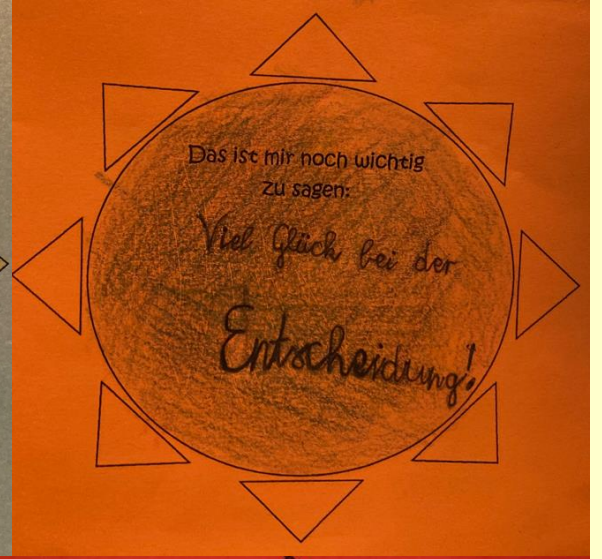 Das ist mir noch wichtig
zu sagen:
Viel Glück bei der
Entscheidung!